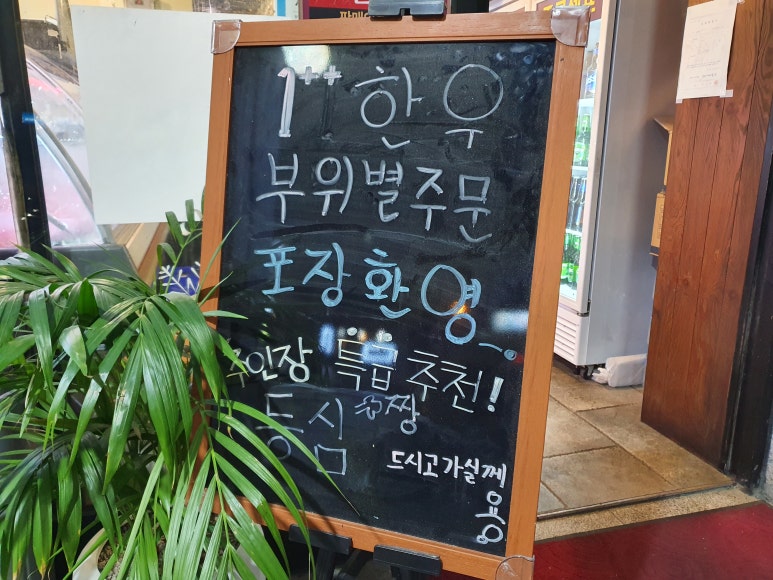 1++ 한우
부위별주문
포장환영~
주인장 특급 추천!
등심 쿵짱
드시고가실께
용